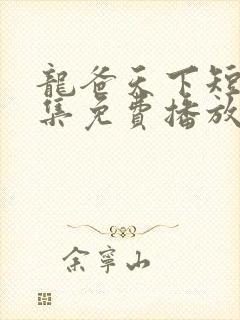 龍爸天下短
集免費播放
余寧山